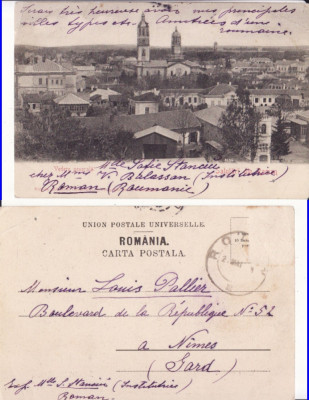 Serais très heureuse avoir mes principales
villes types etc. Amitiées d'une
roumaine.
Mlle Sofie Stanciu
chez Mme V. Balassan (Institutrice)
Roman (Roumanie)
UNION POSTALE UNIVERSELLE.
ROMÂNIA.
CARTA POSTALA.
ROMAN
Monsieur Louis Pallier
Boulevard de la République No 52
a Nîmes
(Gard)
Exp. Mlle S. Stanciu (Institutrice)
Roman